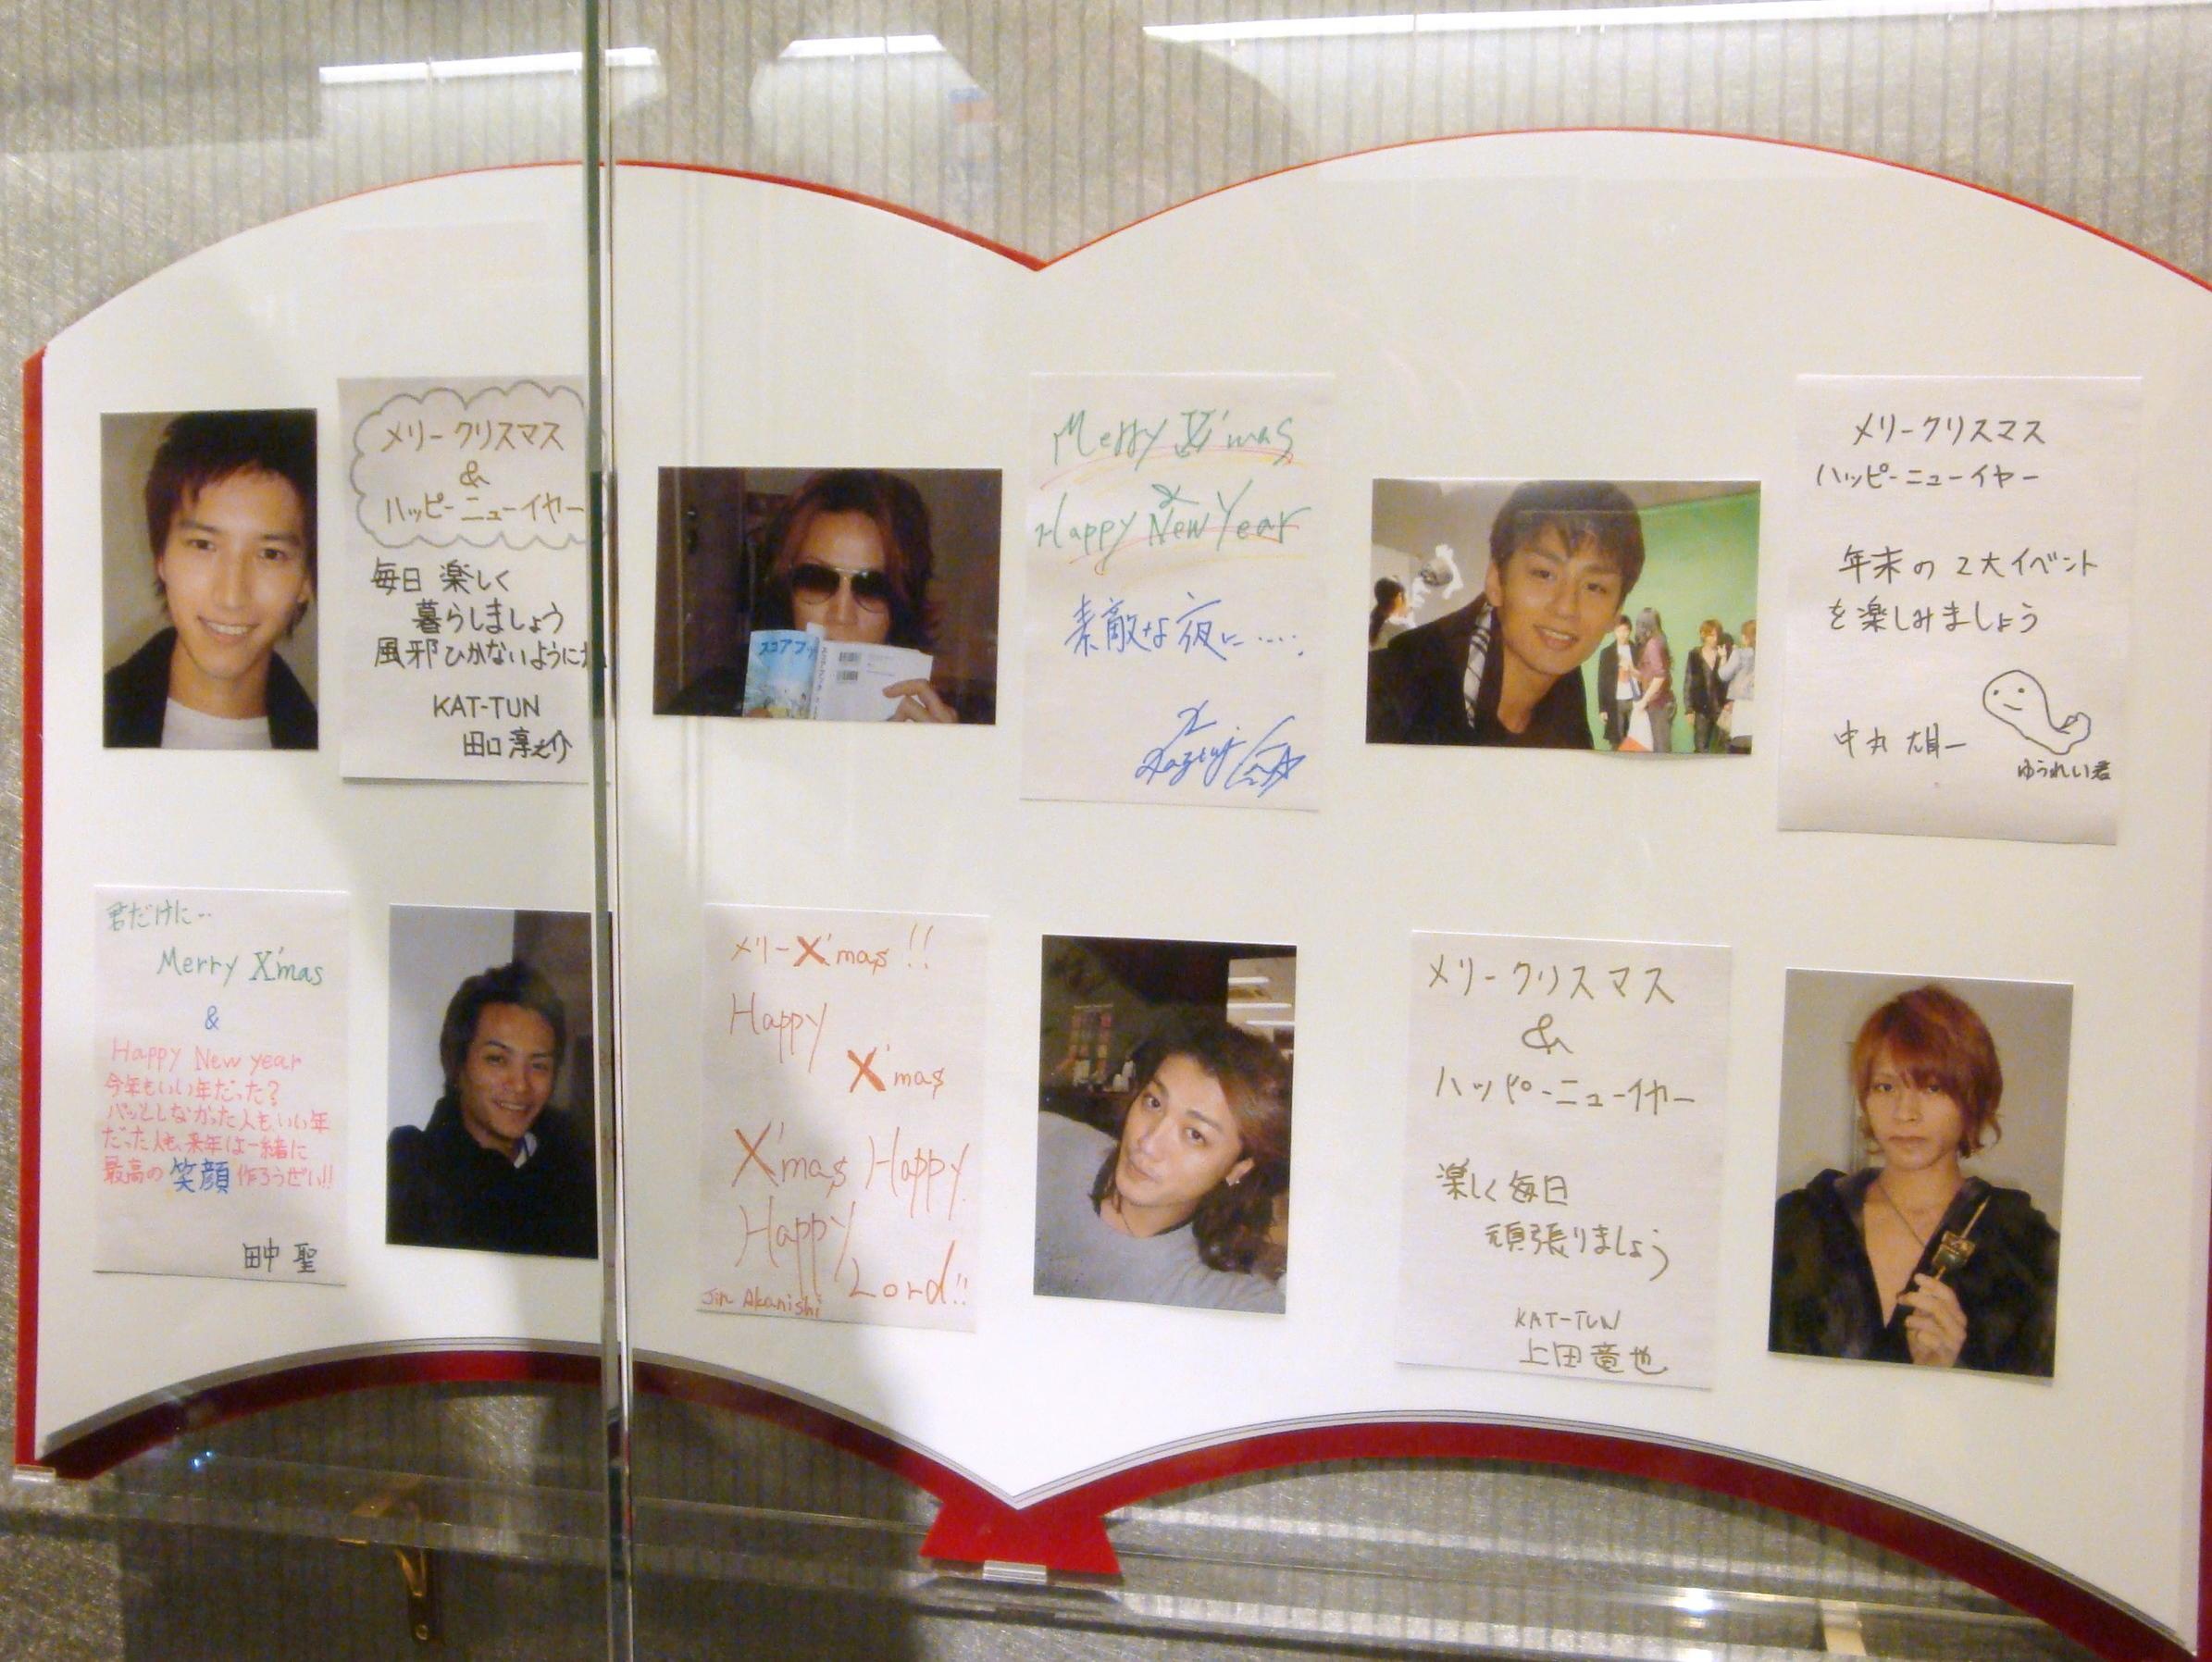 メリークリスマス
&
ハッピーニューイヤー
毎日 楽しく
暮らしましょう
風邪ひかないように
KAT-TUN
田口 淳之介
スコアブッ
Merry X'mas
&
Happy New Year
素敵な夜に.....
メリークリスマス
ハッピーニューイヤー
年末の2大イベント
を楽しみましょう
中丸 雄一
ゆうれい君
君だけに…
Merry X'mas
&
Happy New year
今年もいい年だった?
パッとしなかった人もいい年
だった人も、来年は一緒に
最高の 笑顔 作ろうぜぃ!!
田中 聖
メリーX'mas!!
Happy
X'mas
X'mas Happy
Happy
Lord!!
Jin Akanishi
メリークリスマス
&
ハッピーニューイヤー
楽しく毎日
頑張りましょう
KAT-TUN
上田竜也